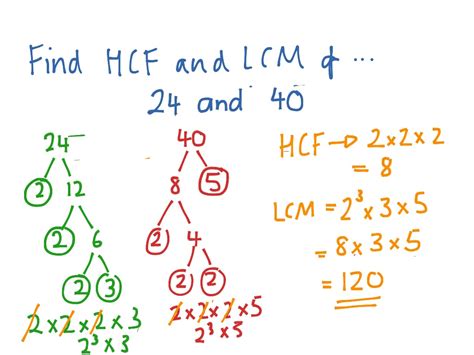 Find HCF and LCM of ...
24 and 40
24
2 12
2 6
2 3
2 x 2 x 2 x 3
2³ x 3
40
8 5
2 4
2 2
2 x 2 x 2 x 5
2³ x 5
HCF → 2 x 2 x 2
= 8
LCM = 2³ x 3 x 5
= 8 x 3 x 5
= 120